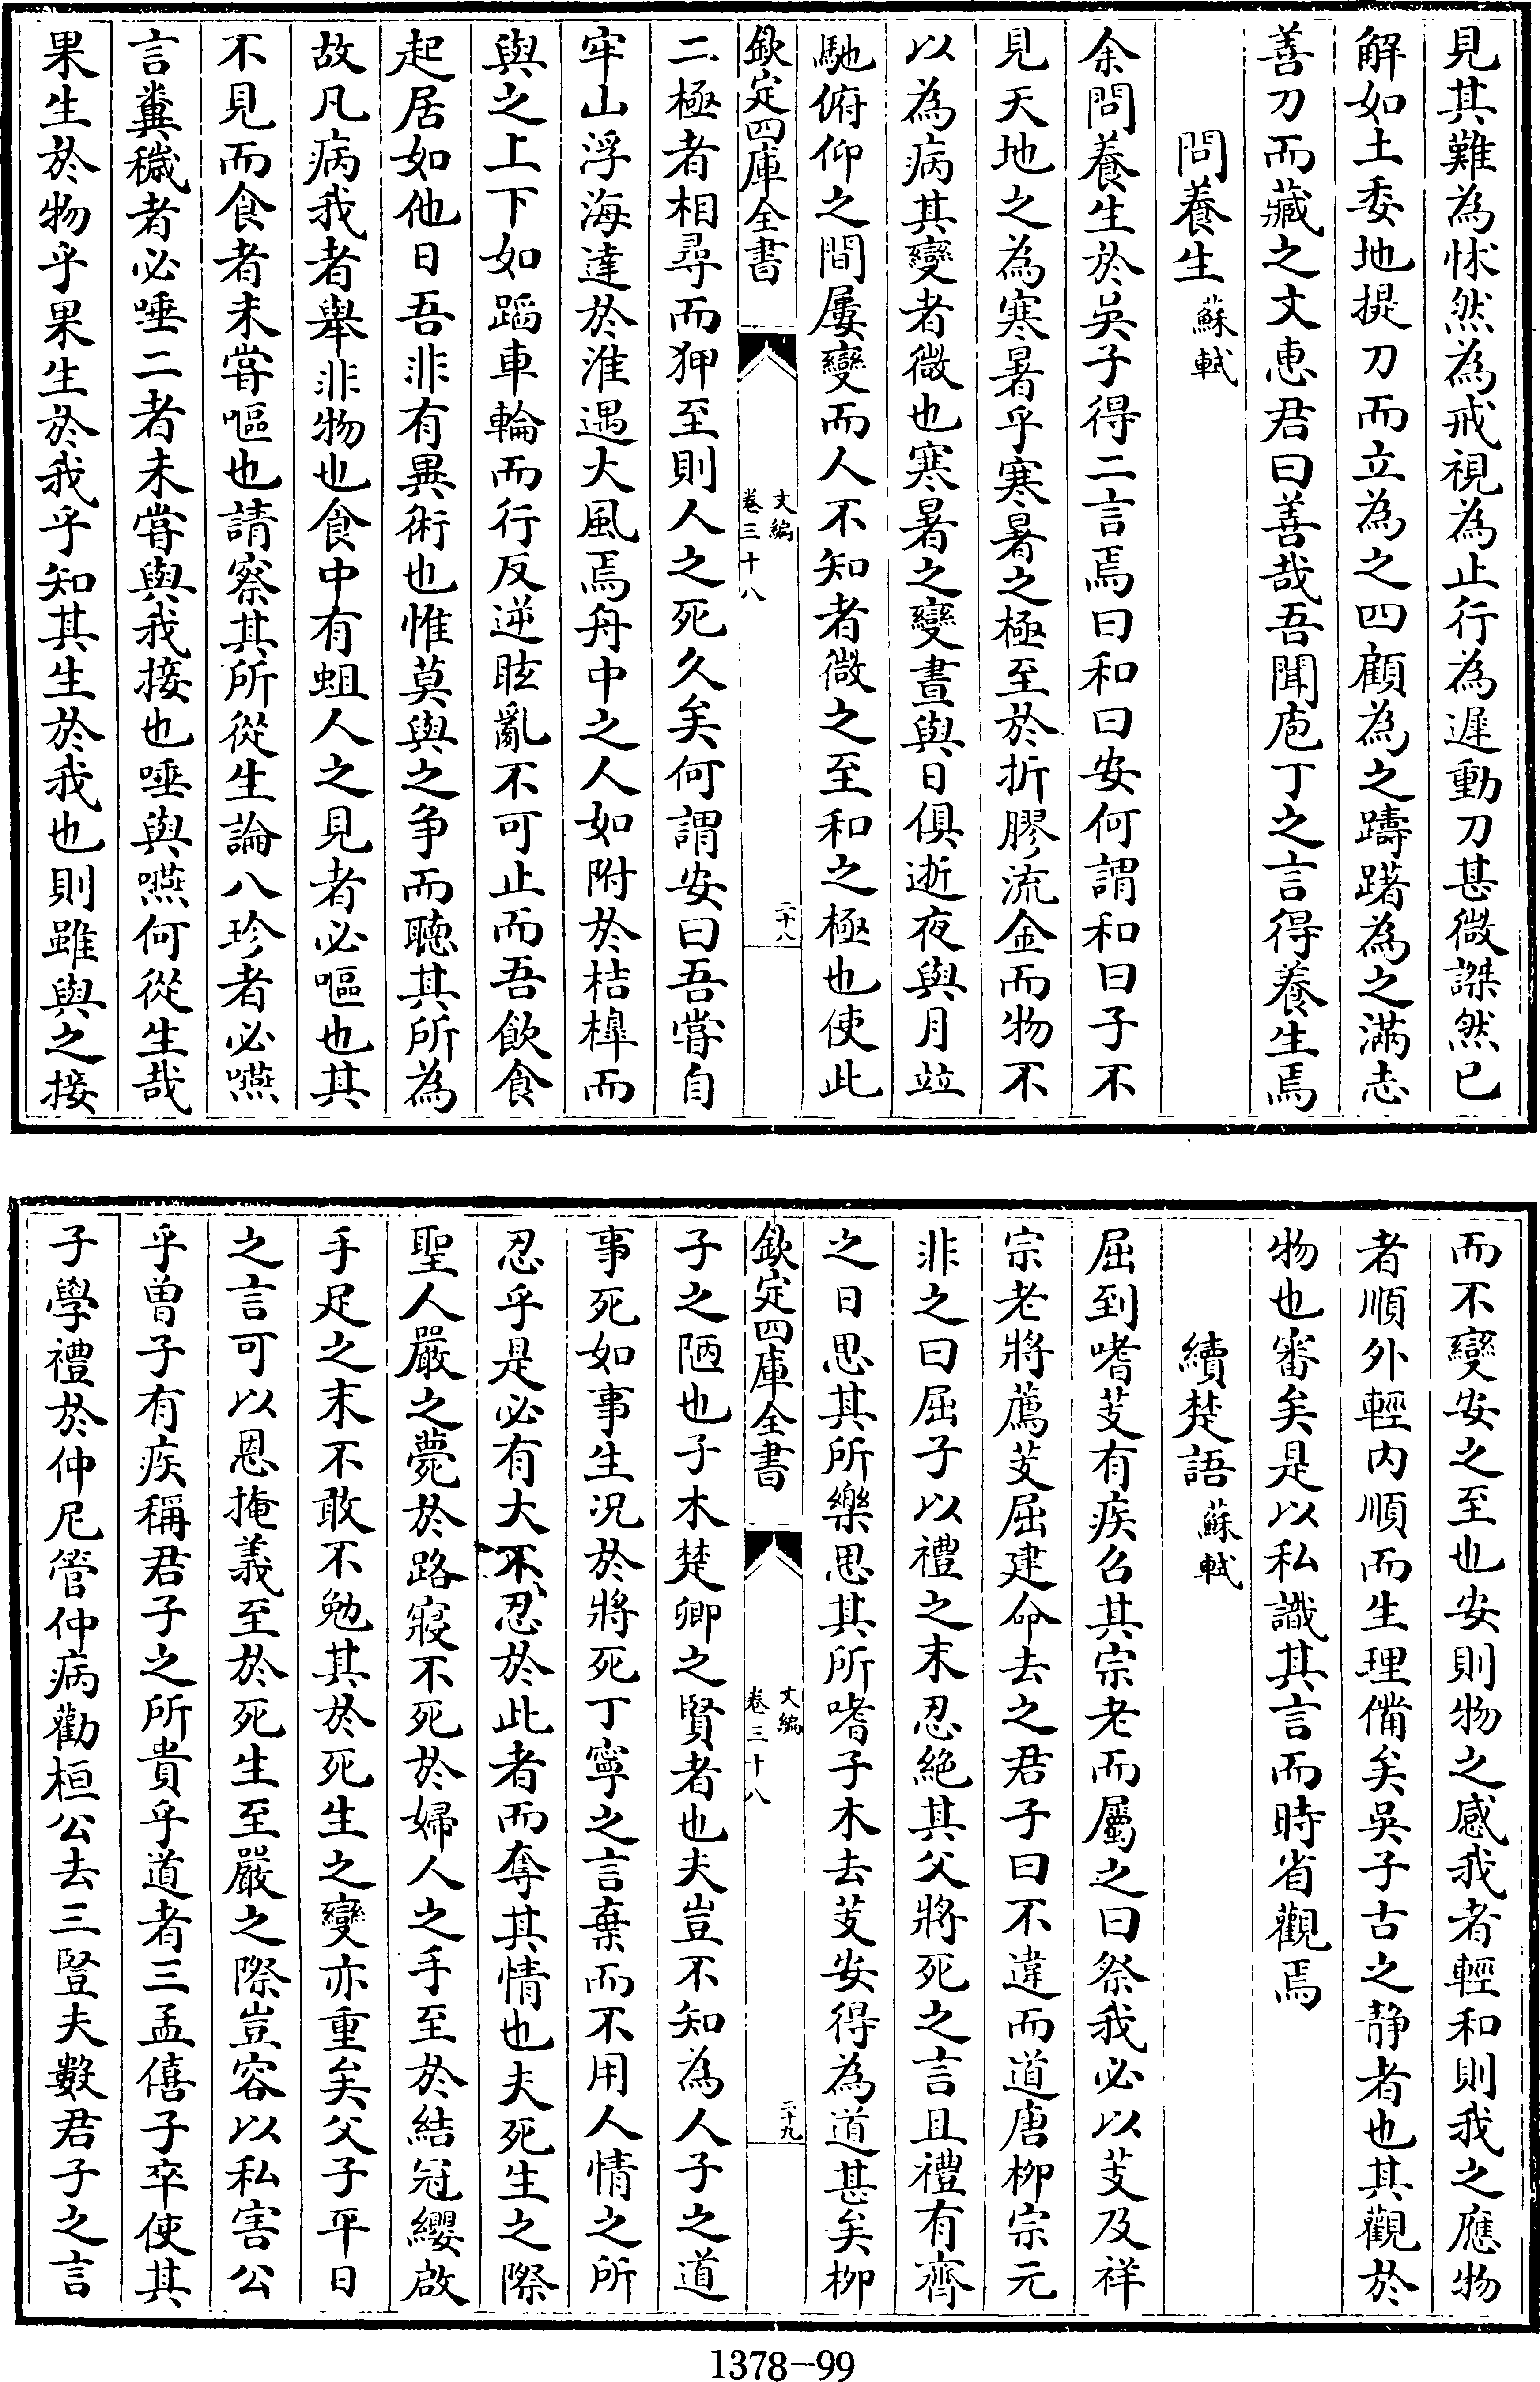 見其難為怵然為戒視為止行為遲動刀甚微謋然已
解如土委地提刀而立為之四顧為之躊躇為之滿志
善刀而藏之文惠君曰善哉吾聞庖丁之言得養生焉
問養生 蘇軾
余問養生於吳子得二言焉曰和曰安何謂和曰子不
見天地之為寒暑乎寒暑之極至於折膠流金而物不
以為病其變者微也寒暑之變晝與日俱逝夜與月竝
馳俯仰之間屢變而人不知者微之至和之極也使此
欽定四庫全書 文編 卷三十八 二十八
二極者相尋而狎至則人之死久矣何謂安曰吾嘗自
牢山浮海達於淮遇大風焉舟中之人如附於桔槔而
與之上下如蹈車輪而行反逆眩亂不可止而吾飲食
起居如他日吾非有異術也惟莫與之爭而聽其所為
故凡病我者舉非物也食中有蛆人之見者必嘔也其
不見而食者未嘗嘔也請察其所從生論八珍者必嚥
言糞穢者必唾二者未嘗與我接也唾與嚥何從生哉
果生於物乎果生於我乎知其生於我也則雖與之接
而不變安之至也安則物之感我者輕和則我之應物
者順外輕內順而生理備矣吳子古之靜者也其觀於
物也審矣是以私識其言而時省觀焉
續楚語 蘇軾
屈到嗜芰有疾召其宗老而屬之曰祭我必以芰及祥
宗老將薦芰屈建命去之君子曰不違而道唐栁宗元
非之曰屈子以禮之末忍絶其父將死之言且禮有齊
之日思其所樂思其所嗜子木去芰安得為道甚矣栁
欽定四庫全書 文編 卷三十八 二十九
子之陋也子木楚卿之賢者也夫豈不知為人子之道
事死如事生况於將死丁寧之言棄而不用人情之所
忍乎是必有大不忍於此者而奪其情也夫死生之際
聖人嚴之薨於路寢不死於婦人之手至於結冠纓啟
手足之末不敢不勉其於死生之變亦重矣父子平日
之言可以恩掩義至於死生至嚴之際豈容以私害公
乎曾子有疾稱君子之所貴乎道者三孟僖子卒使其
子學禮於仲尼管仲病勸桓公去三豎夫數君子之言
1378-99